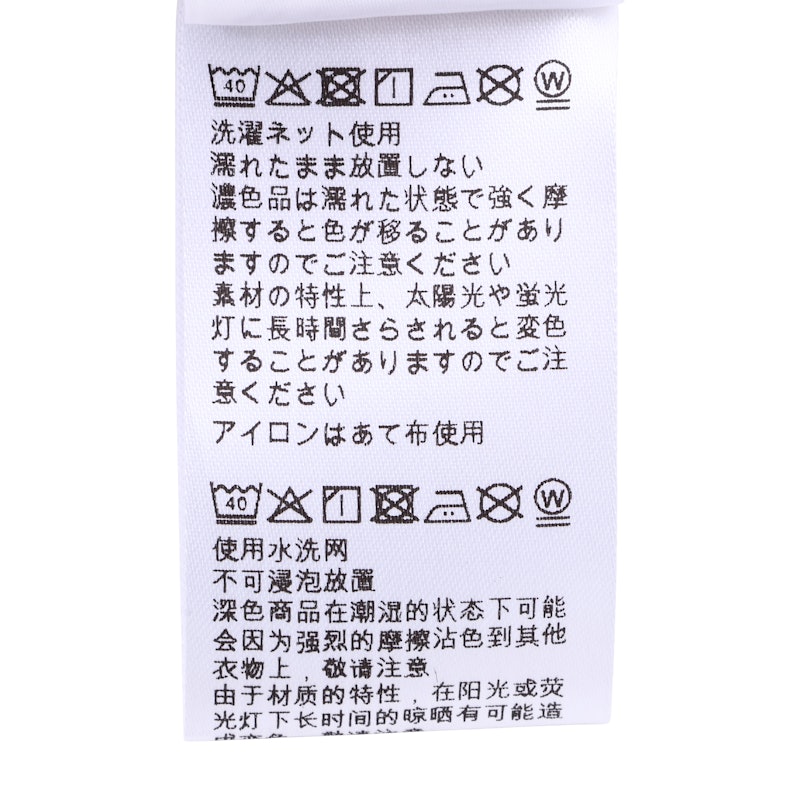 40 W
洗濯ネット使用
濡れたまま放置しない
濃色品は濡れた状態で強く摩
擦すると色が移ることがあり
ますのでご注意ください
素材の特性上、太陽光や蛍光
灯に長時間さらされると変色
することがありますのでご注
意ください
アイロンはあて布使用
40 W
使用水洗网
不可浸泡放置
深色商品在潮湿的状态下可能
会因为强烈的摩擦沾色到其他
衣物上，敬请注意
由于材质的特性，在阳光或荧
光灯下长时间的晾晒有可能造